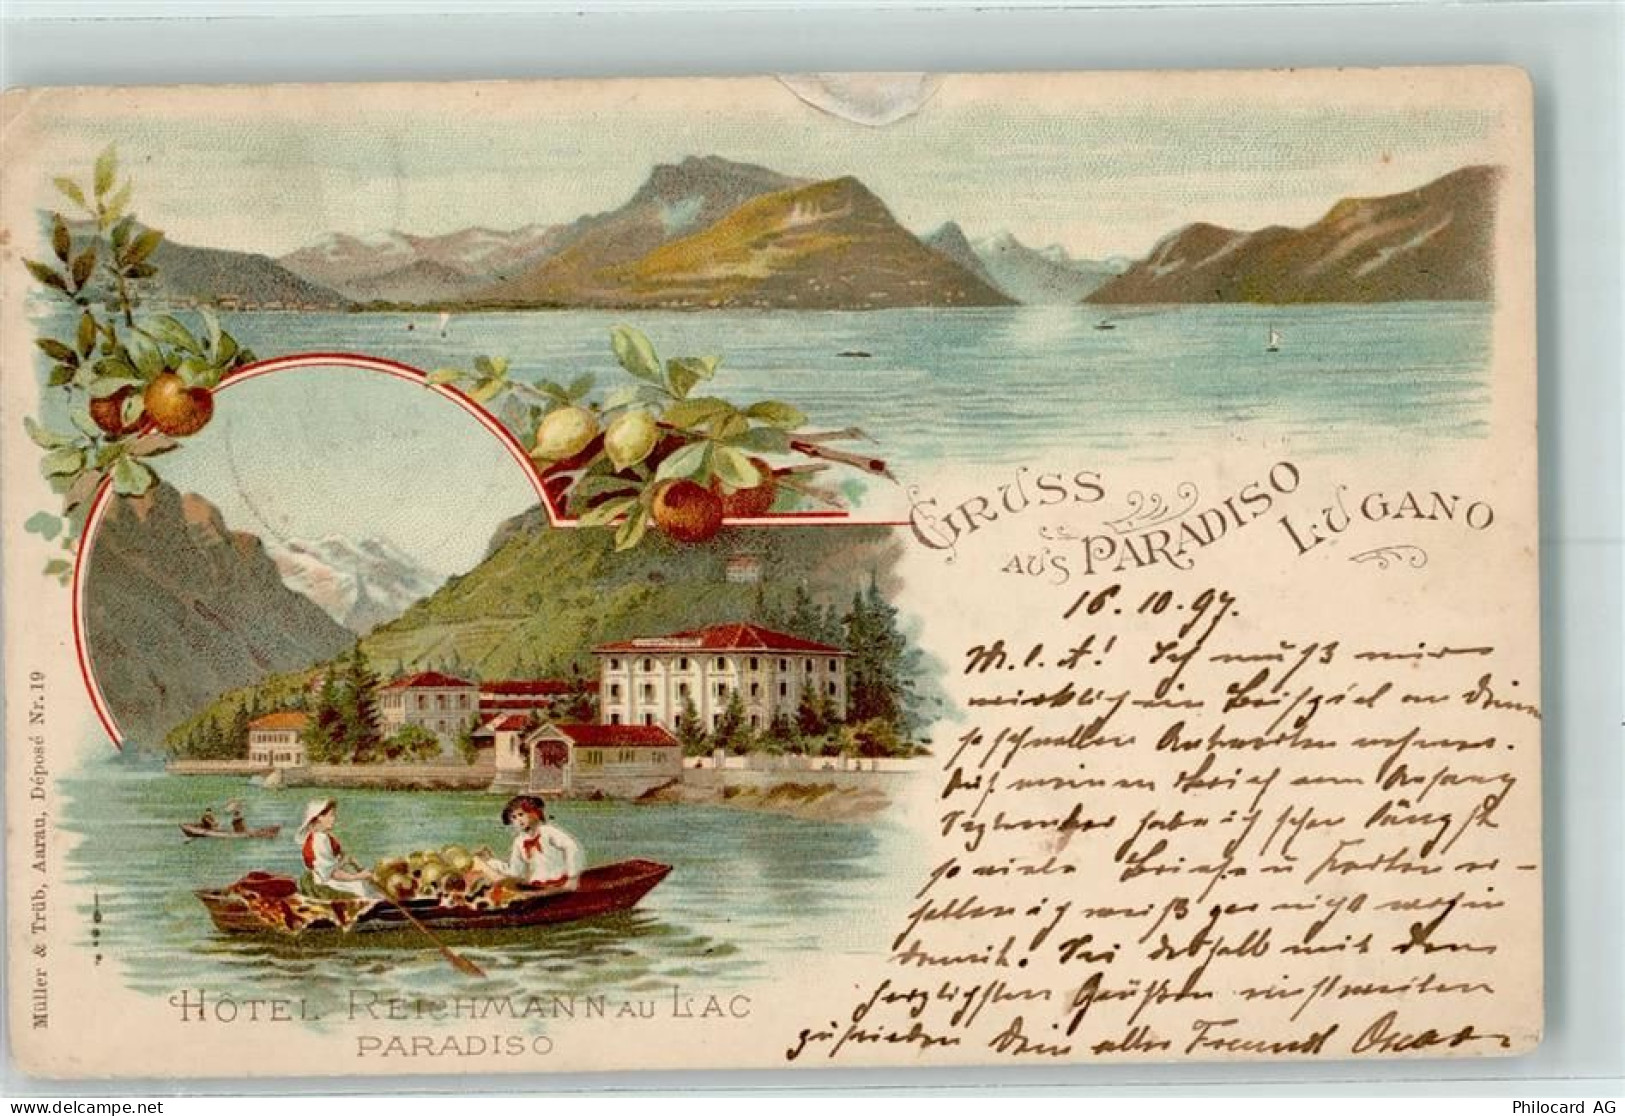 GRUSS
AUS PARADISO
LUGANO
16.10.97.
M. l. A! Ich muß mir
wirklich ein Beispiel an Deinen
so schnellen Antworten nehmen.
Auf meinen Brief am Anfang
September habe ich schon längst
so viele Briefe u Karten er-
halten ich weiß gar nicht wohin
damit. Sei deshalb mit den
herzlichsten Grüßen einstweilen
zufrieden Dein alter Freund Oscar
HÔTEL REICHMANN AU LAC
PARADISO
Müller & Trüb, Aarau, Déposé Nr. 19
delcampe.net
Philocard AG